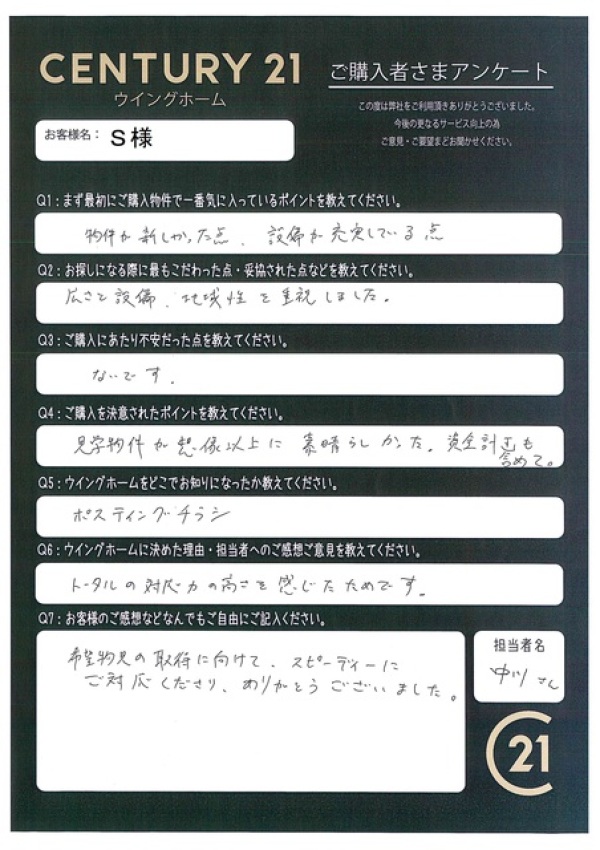 CENTURY 21
ウイングホーム
ご購入者さまアンケート
この度は弊社をご利用頂きありがとうございました。
今後の更なるサービス向上の為
ご意見・ご要望までお聞かせください。
お客様名： S様
Q1：まず最初にご購入物件で一番気に入っているポイントを教えてください。
物件が新しかった点、設備が充実している点
Q2：お探しになる際に最もこだわった点・妥協された点などを教えてください。
広さと設備、地域性を重視しました。
Q3：ご購入にあたり不安だった点を教えてください。
ないです.
Q4：ご購入を決意されたポイントを教えてください。
見学物件が想像以上に素晴らしかった。資金計画も
含めて。
Q5：ウイングホームをどこでお知りになったか教えてください。
ポスティングチラシ
Q6：ウイングホームに決めた理由・担当者へのご感想ご意見を教えてください。
トータルの対応力の高さを感じたためです。
Q7：お客様のご感想などなんでもご自由にご記入ください。
希望物見の取得に向けて、スピーディーに
ご対応くださり、ありがとうございました。
担当者名
中川さん
C21